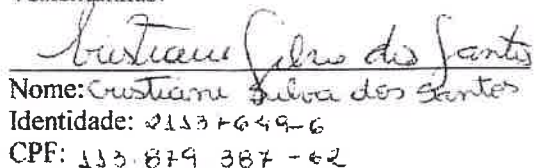 Cristiane Silva dos Santos
Nome: Cristiane Silva dos Santos
Identidade: 2113+649-6
CPF: 113.879 387-62